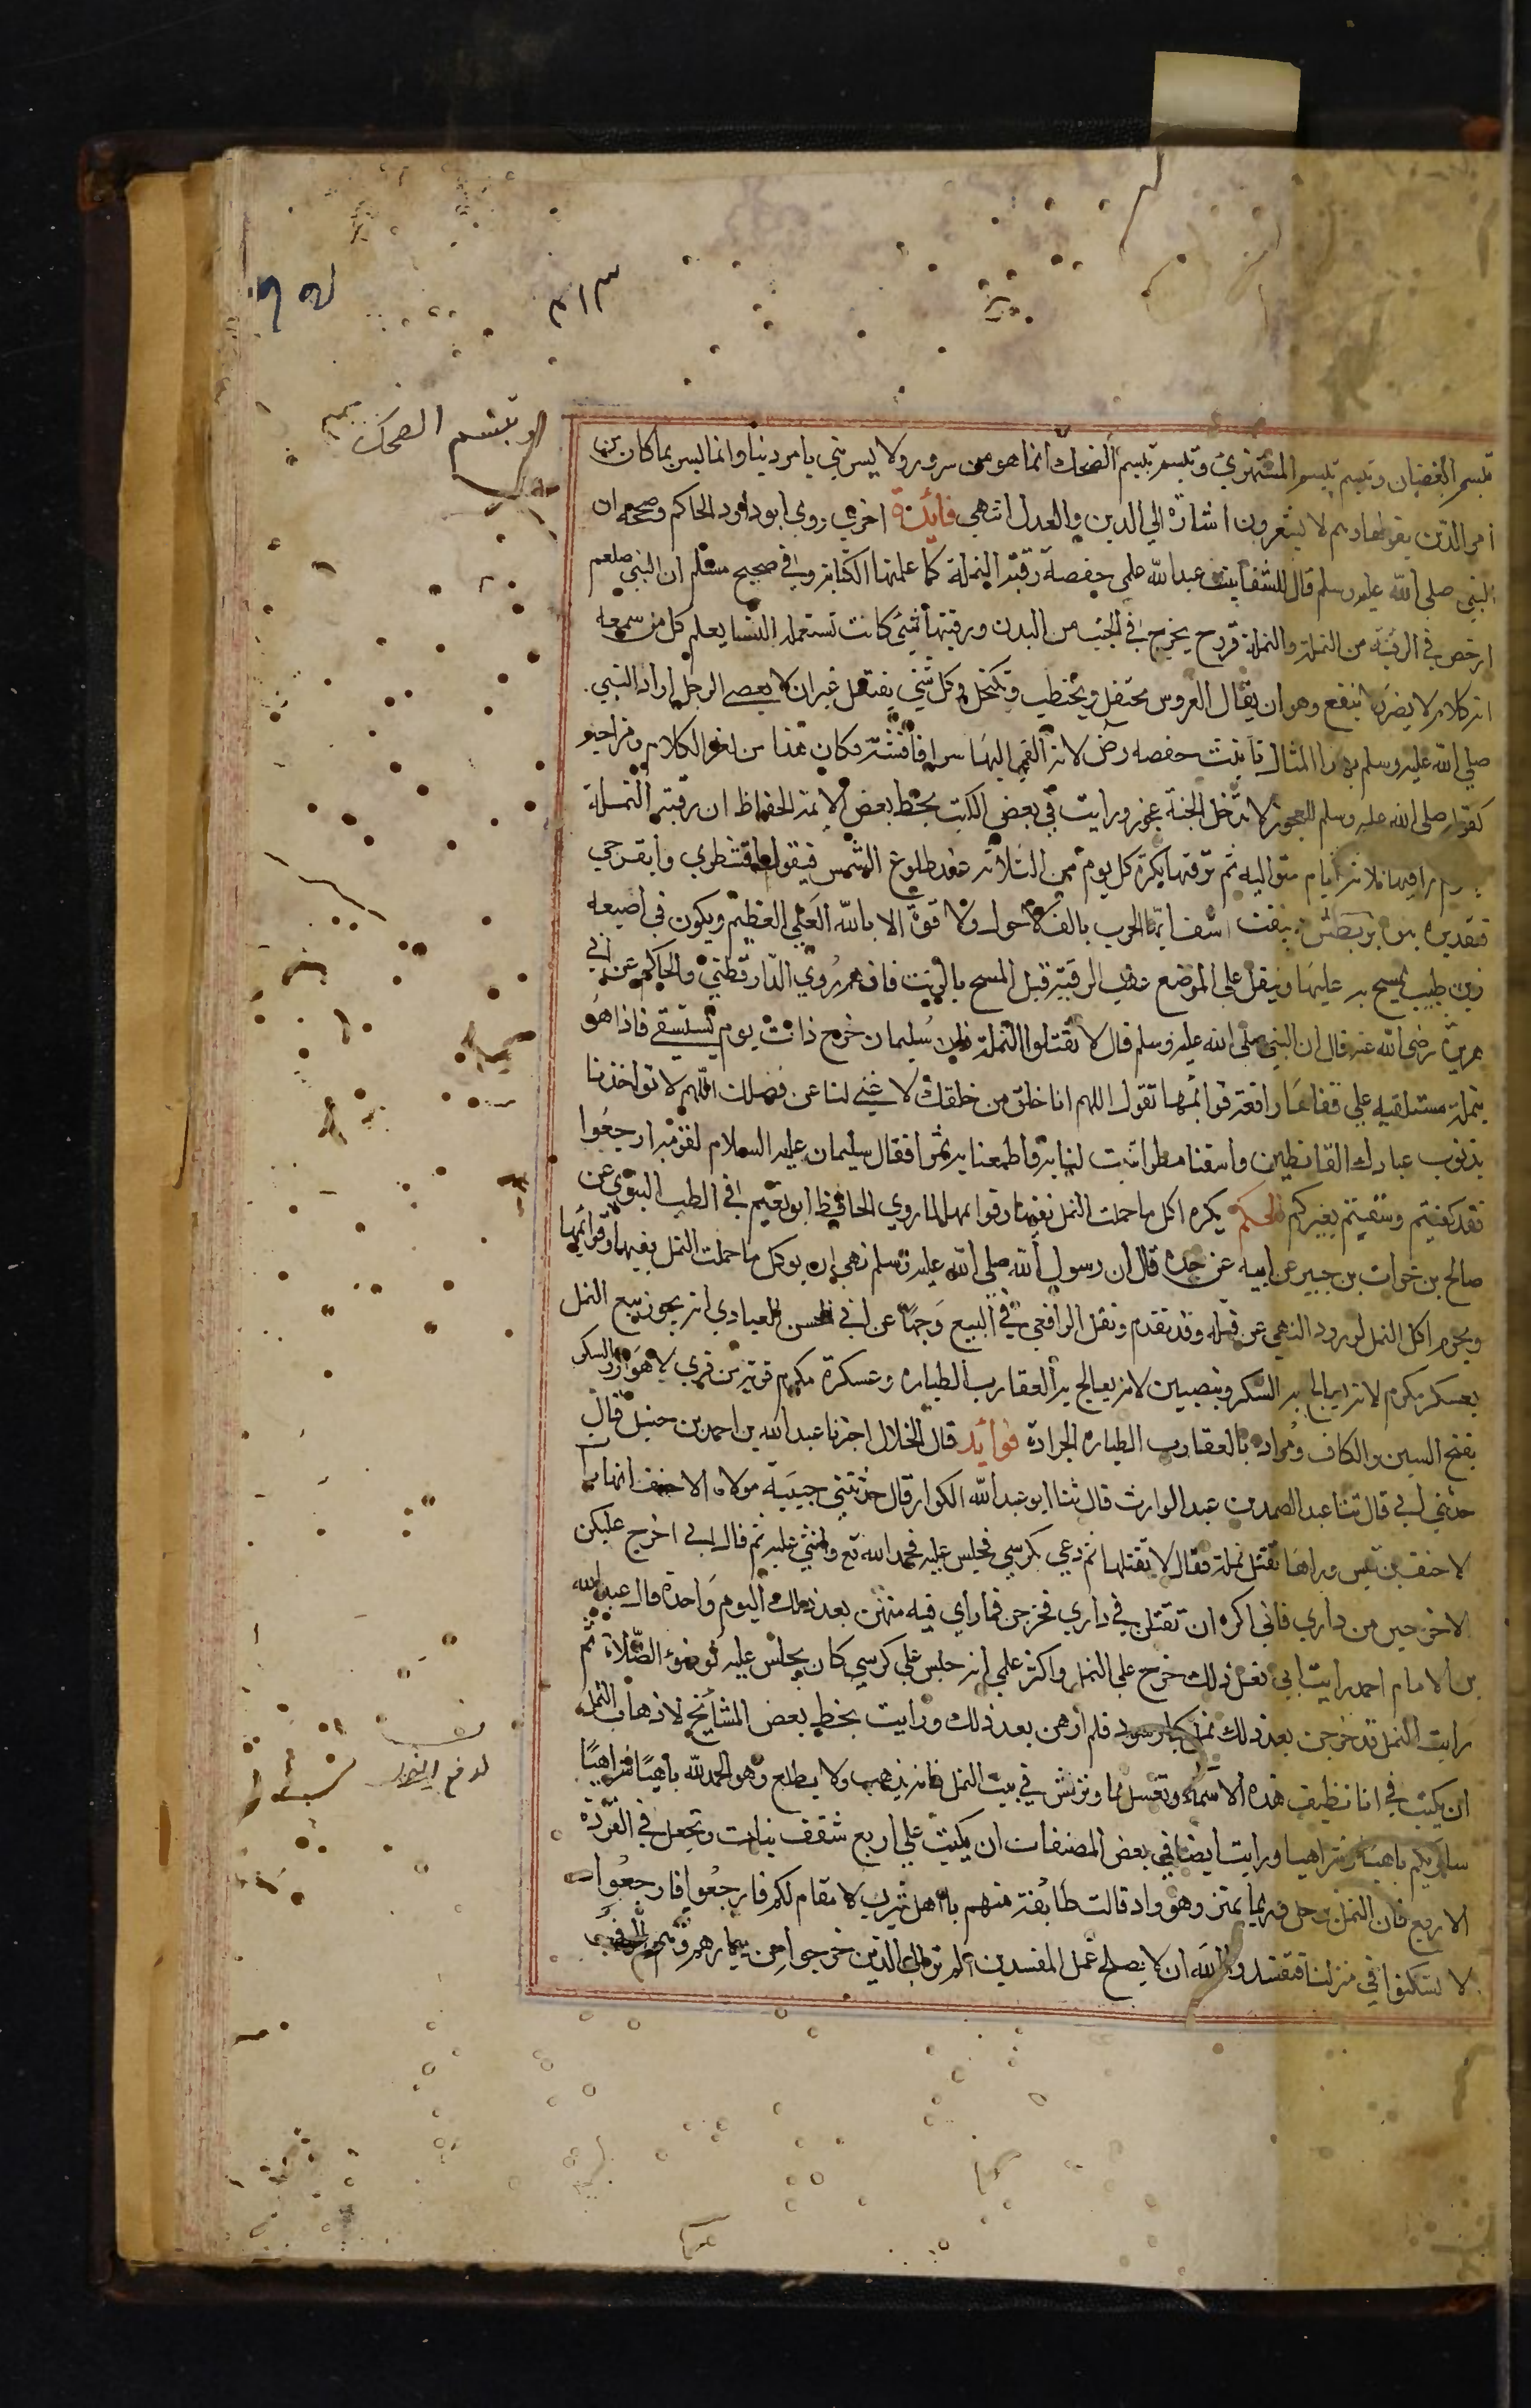 تبسم الغضبان وتبسم تبسم المستهزئ وتبسم تبسم الضحك انما هو من سرور ولا يسر نبي بامر دنيا وانما يسر بما كان من
امر الدين بقولها وهم لا يشعرون اشارة الي الدين والعدل انتهي فايدة اخري روي ابو داود الحاكم وصححه ان
النبي صلي الله عليه وسلم قال للشفا بنت عبد الله علمي حفصة رقية النملة كما علمتها الكتابة وفي صحيح مسلم ان النبي صلعم
ارخص في الرقية من النملة والنملة قروح يخرج في الجنب من البدن ورقيتها شيئ كانت تستعمله النسا يعلم كل من سمعه
انه كلام لا يضر ولا ينفع وهو ان يقال العروس تحتفل وتختطب وتكتحل وكل شئ يفتعل غير ان لا يعصي الرجل اراد النبي
صلي الله عليه وسلم بهذا المثال تانيث حفصه رض لانه القي اليها سرا فافشته فكان هذا من لغو الكلام ومزاحه
كقوله صلي الله عليه وسلم للعجوز لا تدخل الجنة عجوز ورايت في بعض الكتب بخط بعض الايمة الحفاظ ان رقية النملة
يصوم راقيها ثلاثة ايام متواليه ثم ترقيها بكرة كل يوم من الثلاثة عند طلوع الشمس فيقول اقشطري وانفرجي
فقد بره بره بربطش ديبقت اشف ايها الجرب بالف لا حول ولا قوة الا بالله العلي العظيم ويكون في اصبعه
زيت طيب يمسح به عليها ويتفل علي الموضع عقب الرقية قبل المسح بالزيت فانهم روي الدارقطني والحاكم عن ابي
هريرة رضي الله عنه قال ان النبي صلي الله عليه وسلم قال لا تقتلوا النملة فان سليمان خرج ذات يوم يستسقي فاذا هو
بنملة مستلقيه علي قفاها رافعة قوائمها تقول اللهم انا خلق من خلقك لا غني لنا عن فضلك اللهم لا تواخذنا
بذنوب عبادك القانطين واسقنا مطرا تنبت لنا به واطعمنا به ثمرا فقال سليمان عليه السلام لقومه ارجعوا
فقد كفيتم وسقيتم بغيركم الحكم يكره اكل ما حملت النمل بفيها وقوايمها لما روي الحافظ ابو نعيم في الطب النبوي عن
صالح بن خوات بن جبير عن ابيه عن جده قال ان رسول الله صلي الله عليه وسلم نهي ان يوكل ما حملت النمل بفيها وقوائمها
ويحرم اكل النمل لورود النهي عن قتله وقد تقدم ونقل الرافعي في البيع وجها عن ابي الحسن العبادي انه يجوز بيع النمل
بعسكر مكرم لانه يعالج به السكر وبنصيبين لانه يعالج به العقارب الطياره وعسكرة مكرم قرية من قري لاهواز والسكر
بفتح السين والكاف ومراده بالعقارب الطياره الجرادة فوايد قال الخلال اخبرنا عبد الله بن احمد بن حنبل قال
حدثني ابي قال ثنا عبد الصمد بن عبد الوارث قال ثنا ابو عبد الله الكواز قال حدثتني حبيبة مولاة الاحنف انها رات
لاحنف بن قيس وراها تقتل نملة فقال لا تقتلها ثم دعي بكرسي فجلس عليه فحمد الله تع واثني عليه ثم قال اني اخرج عليكن
الا خرجتن من داري فاني اكره ان تقتلن في داري فخرجن فما راي فيه منهن بعد ذلك اليوم واحدة قال عبد الله
بن الامام احمد رايت ابي فعل ذلك خرج علي النمل واكثر علمي انه جلس علي كرسي كان يجلس عليه لوضوء الصلاة ثم
رايت النمل قد خرجن بعد ذلك نمل كبار سود فلم ارهن بعد ذلك ورايت بخط بعض المشائخ لاذهاب النمل
ان يكتب في انا نظيف هذه الاسماء وتغسل بما وترش في بيت النمل فانه يذهب ولا يطلع وهو الحمد لله باهيا شراهيا
ساريكم باهيا شراهيا ورايت ايضا في بعض المصنفات ان يكتب علي اربع شقف نيات وتجعل في القرنة
الاربع فان النمل يرحل وربما يمتن وهو واذ قالت طايفة منهم يا اهل يثرب لا مقام لكم فارجعوا فارجعوا
لا تسكنوا في منزلنا فتفسدوا والله ان لا يصلح عمل المفسدين الم تر الي الذين خرجوا من ديارهم وهم الوف
او تبسم الضحك
لدفع النمل
٣١٣